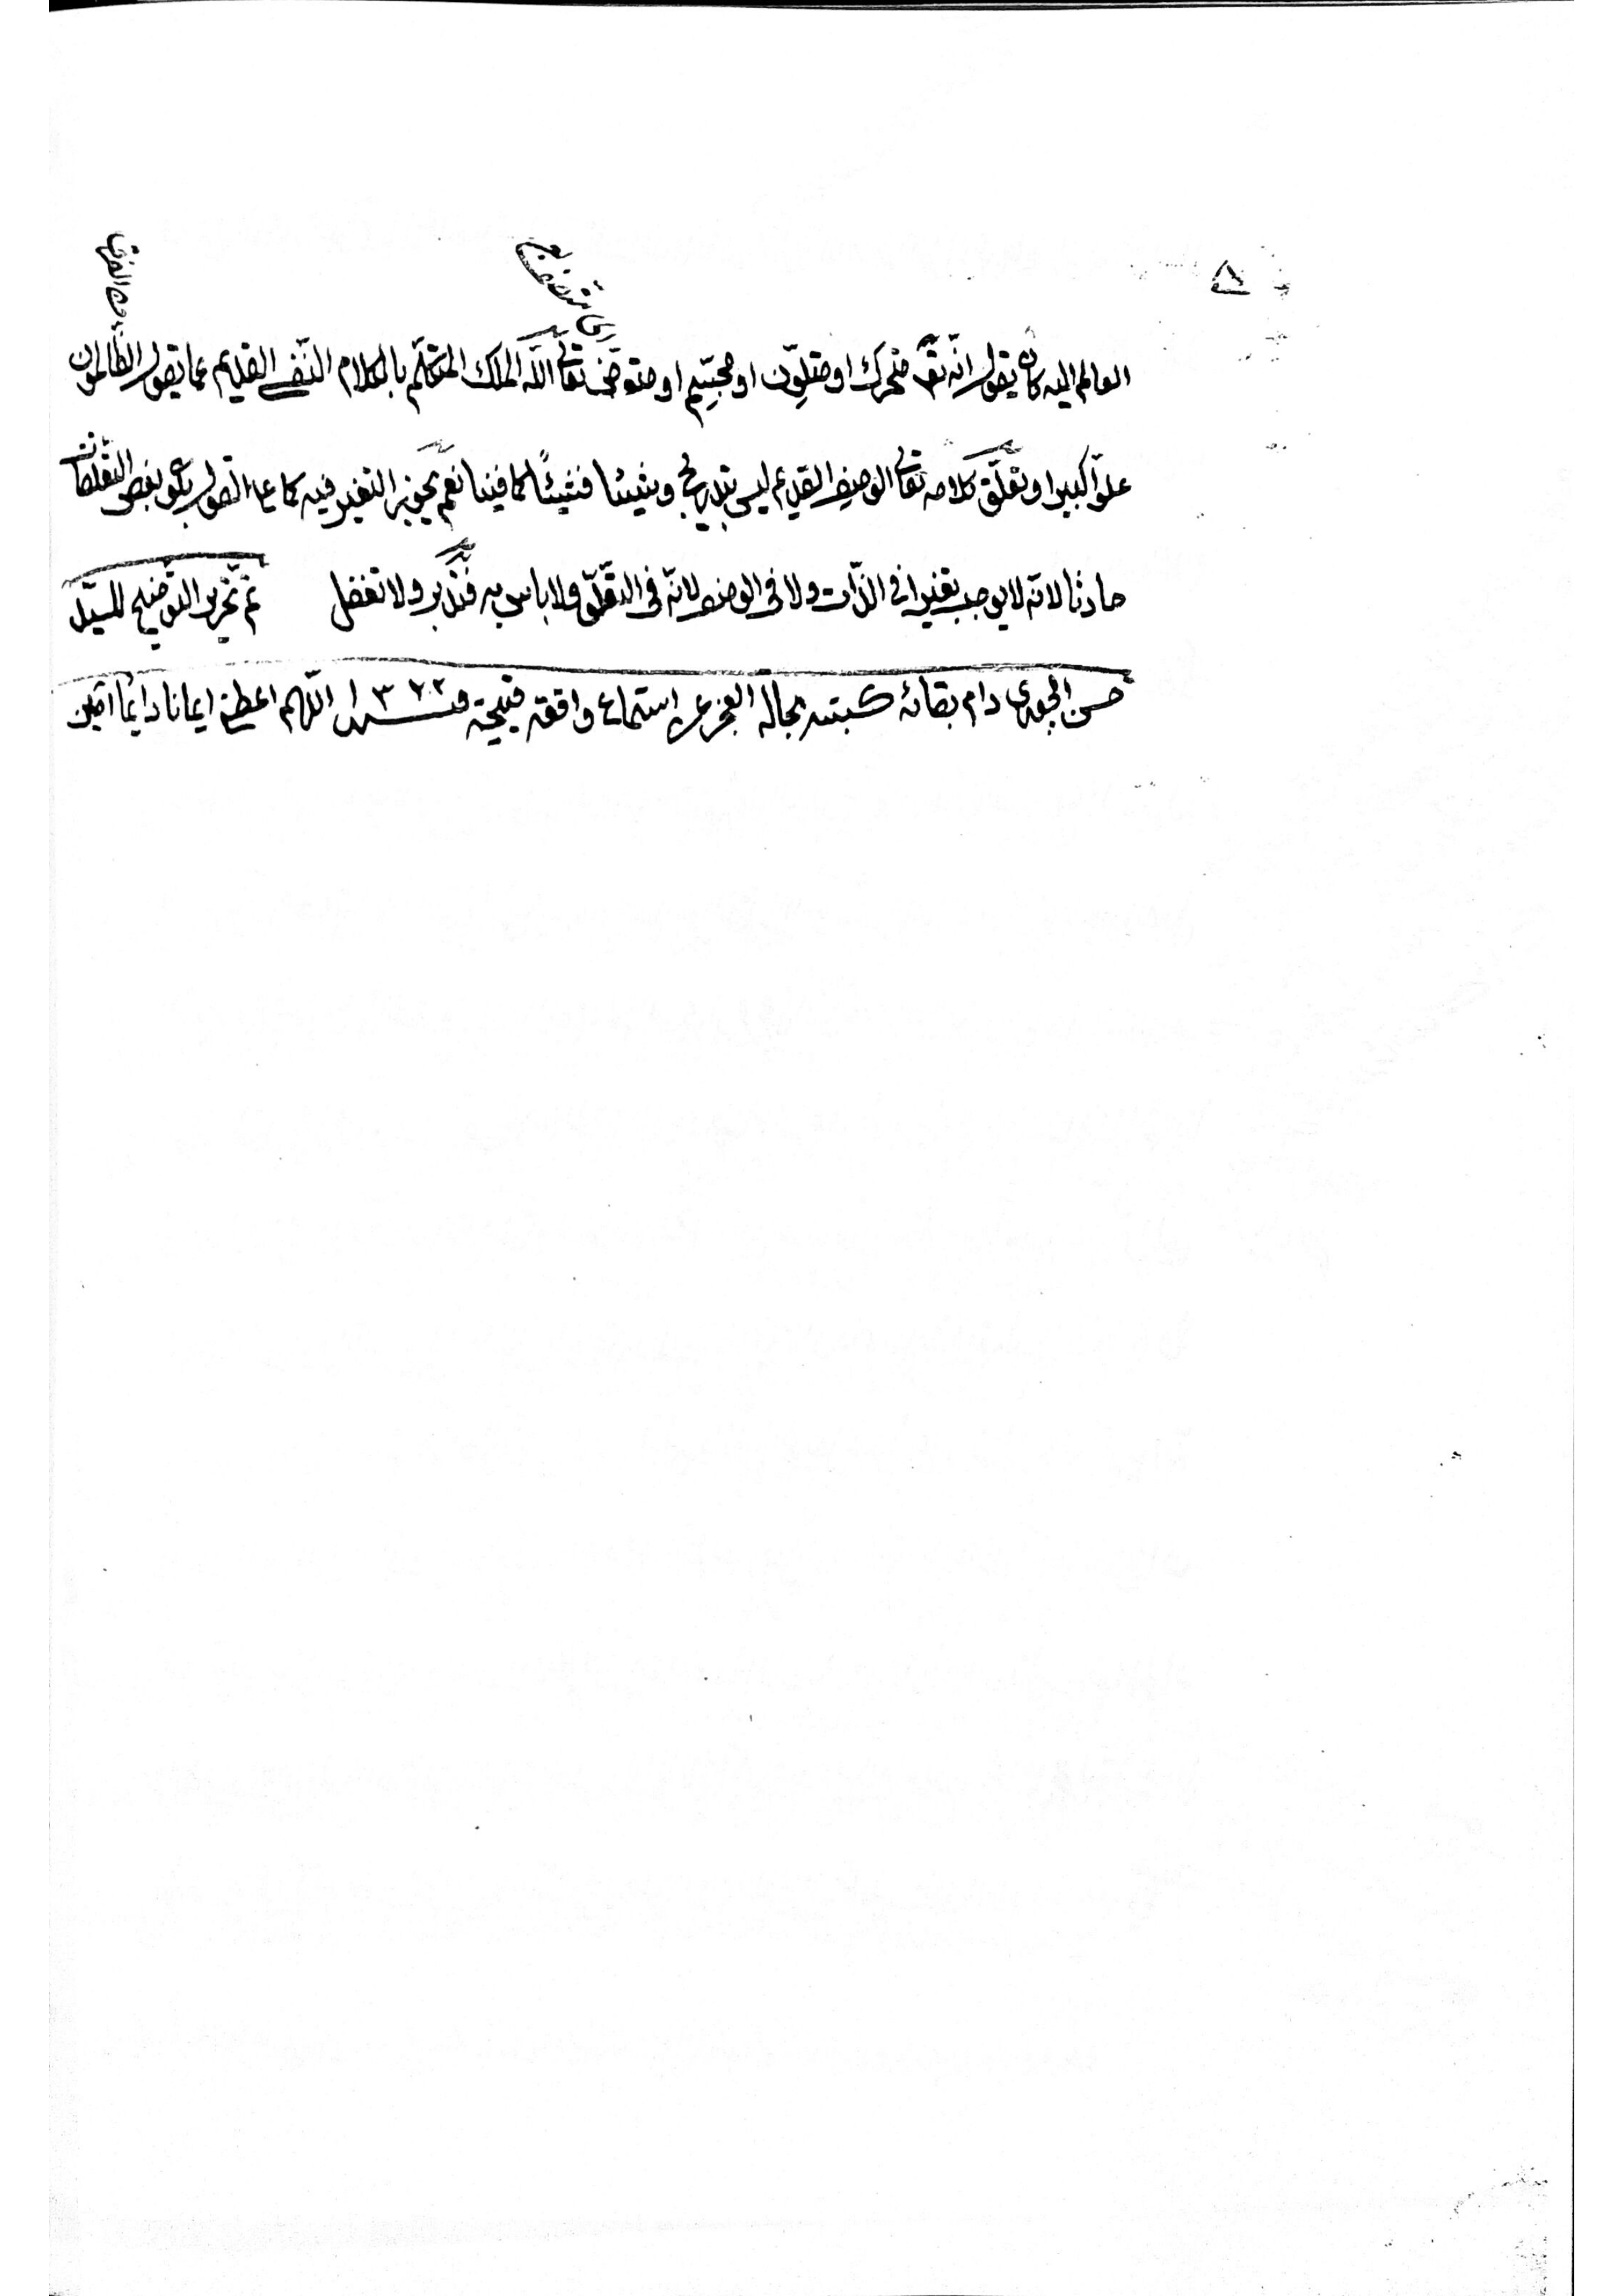 ٨
العالم اليه كان يقول انّه تعٰ متحرك او متلوّن او مجسّم او متوضّئ تعالى الله الملك المتكلّم بالكلام النّفسي القديم عما يقول الظالمون
علوّا كبيرا وتعلّق كلامه تعالى الوصف القديم ليس بتدريج وشيئا فشيئًا كما فينا نعم يجوز التغير فيه كما على القول بكون بعض التعلقات
حادثا لانه لا يوجب تغيرا في الذّات ولا في الوصف لانّه في التّعلّق ولا باس به فتدّبر ولا تغفل تمّ تحرير التوضيح للسّيّد
حسن الجوري دام بقائه كتبته بحالة العجز عن استماع واقعة قبيحة سنة ١٣٦٢ اللّهم اعطني ايمانا دايما امين